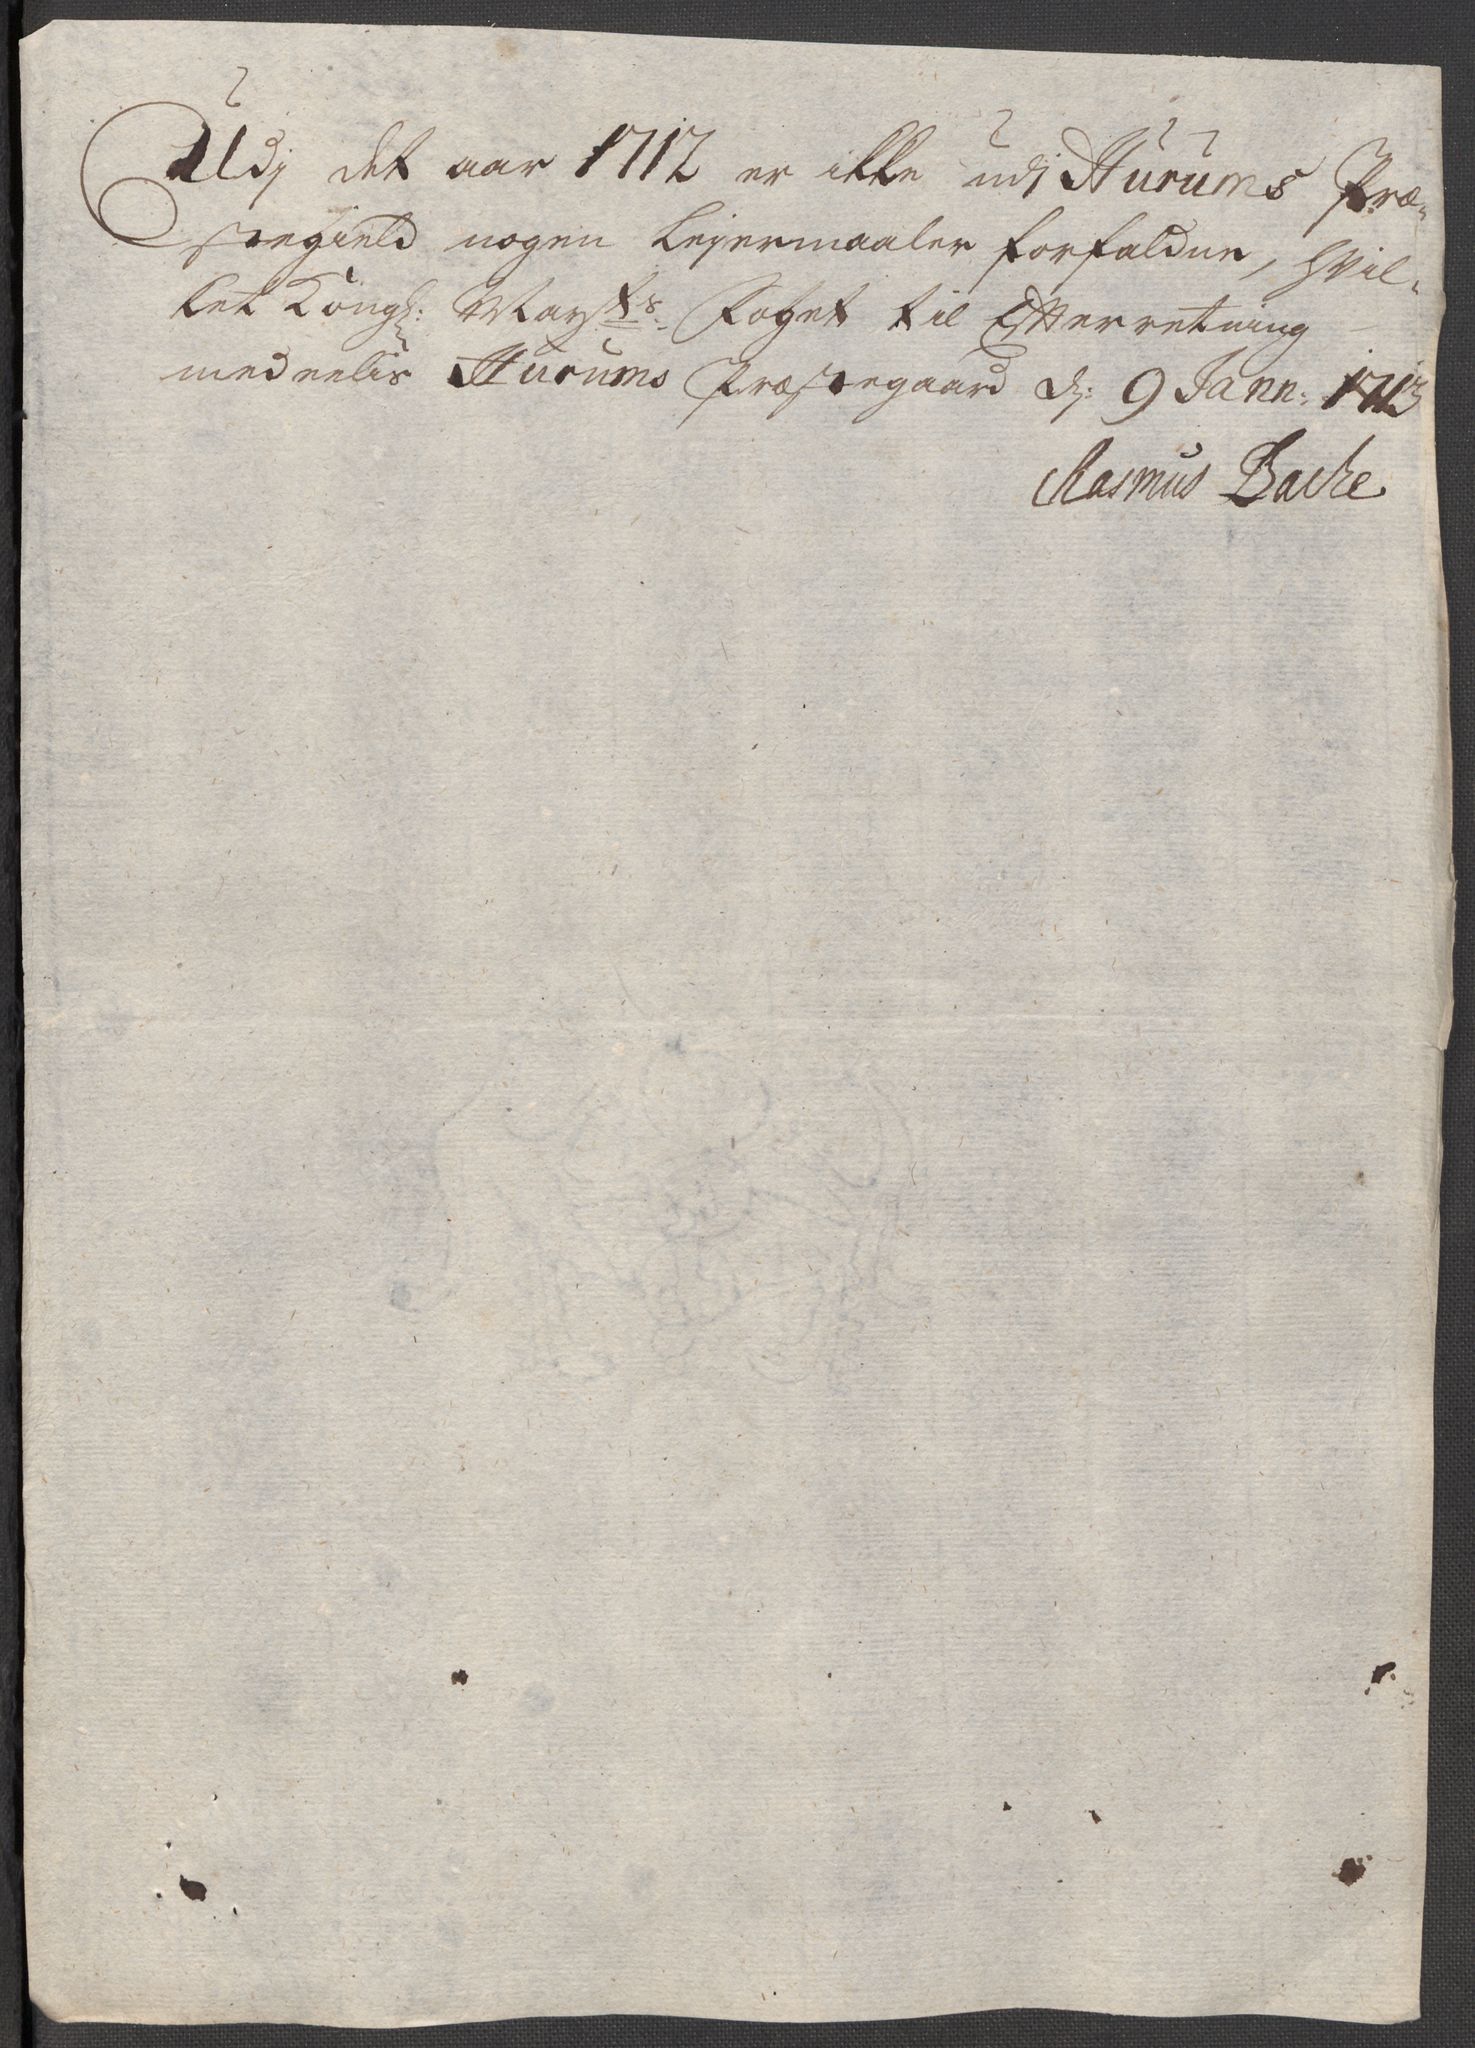 Udj det aar 1712 er ikke udj Hurums Præ-
stegield nogen Lejermaaler forfalden, hvil-
ket Kongl: Mayts: Foget til Efterretning
meddeelis Hurums Præstegaard d: 9 Jann: 1713
Rasmus Bache